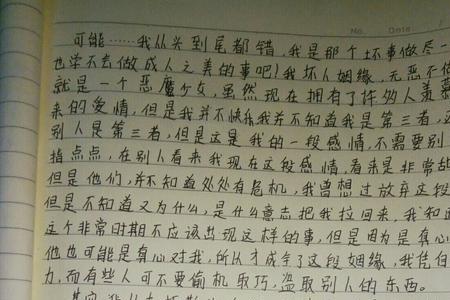 No. Date
可能……我从头到尾都错,我是那个坏事做尽一
也学不去做成人之美的事吧!我坏人姻缘,无恶不作
就是一个恶魔少女,虽然现在拥有了许多人羡慕
来的爱情,但是我并不快我我并不知道我是第三者,
别人是第三者,但是这是我的一段感情,不需要别
指点点,在别人看来我现在这段感情,看来是非常
但是他们,并不知道处处有危机,我曾想过放弃这段
但是不知道又为什么,是什么意志把我拉回来,我知道
这个非常时期不应该出现这样的事,但是因为是真心
他也可能是真心对我,所以才成全了这段姻缘,我凭自
力,而有些人可不要偷机取巧,盗取别人的东西。